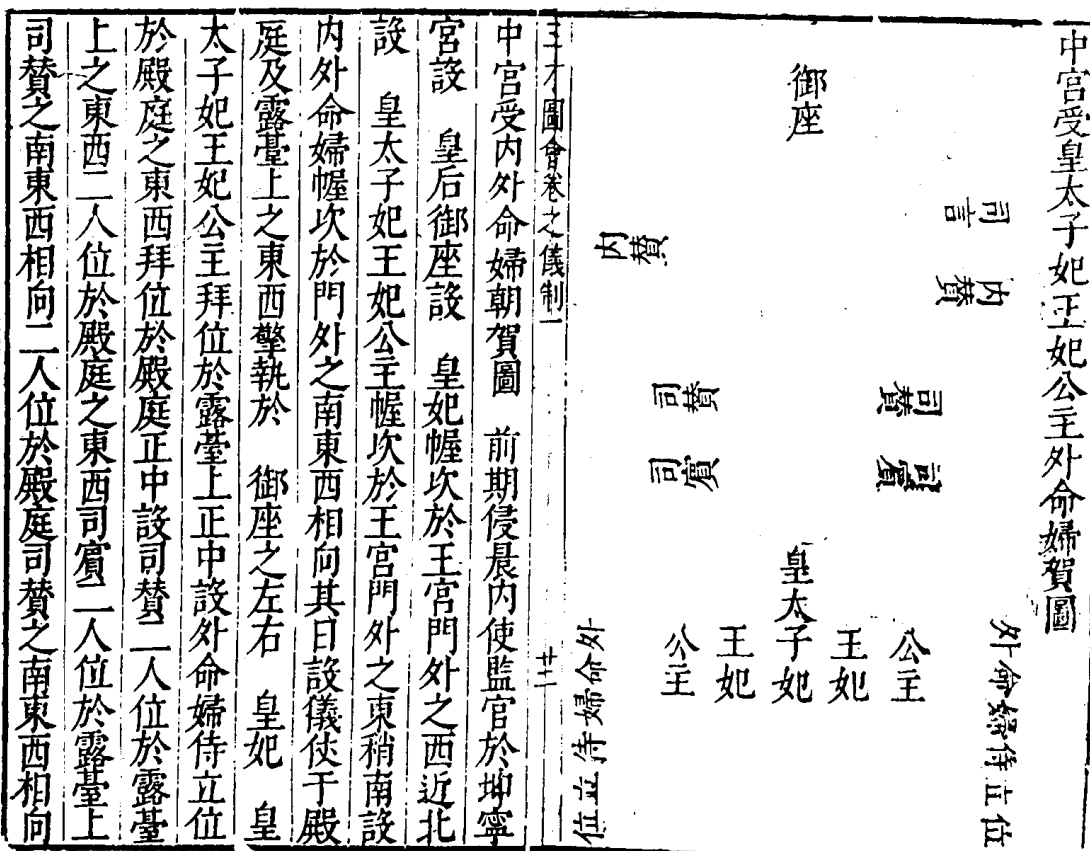 中宮受皇太子妃王妃公主外命婦賀圖
御座
司言
內贊
內贊
司贊
司贊
司賓
司賓
皇太子妃
王妃
王妃
公主
公主
外命婦侍立位
外命婦侍立位
三才圖會卷之儀制一
廿二
中宮受內外命婦朝賀圖　前期侵晨內使監官於坤寧
宮設　皇后御座設　皇妃幄次於王宮門外之西近北
設　皇太子妃王妃公主幄次於王宮門外之東稍南設
內外命婦幄次於門外之南東西相向其日設儀仗于殿
庭及露臺上之東西擎執於　御座之左右　皇妃　皇
太子妃王妃公主拜位於露臺上正中設外命婦侍立位
於殿庭之東西拜位於殿庭正中設司贊二人位於露臺
上之東西二人位於殿庭之東西司賓二人位於露臺上
司贊之南東西相向二人位於殿庭司贊之南東西相向